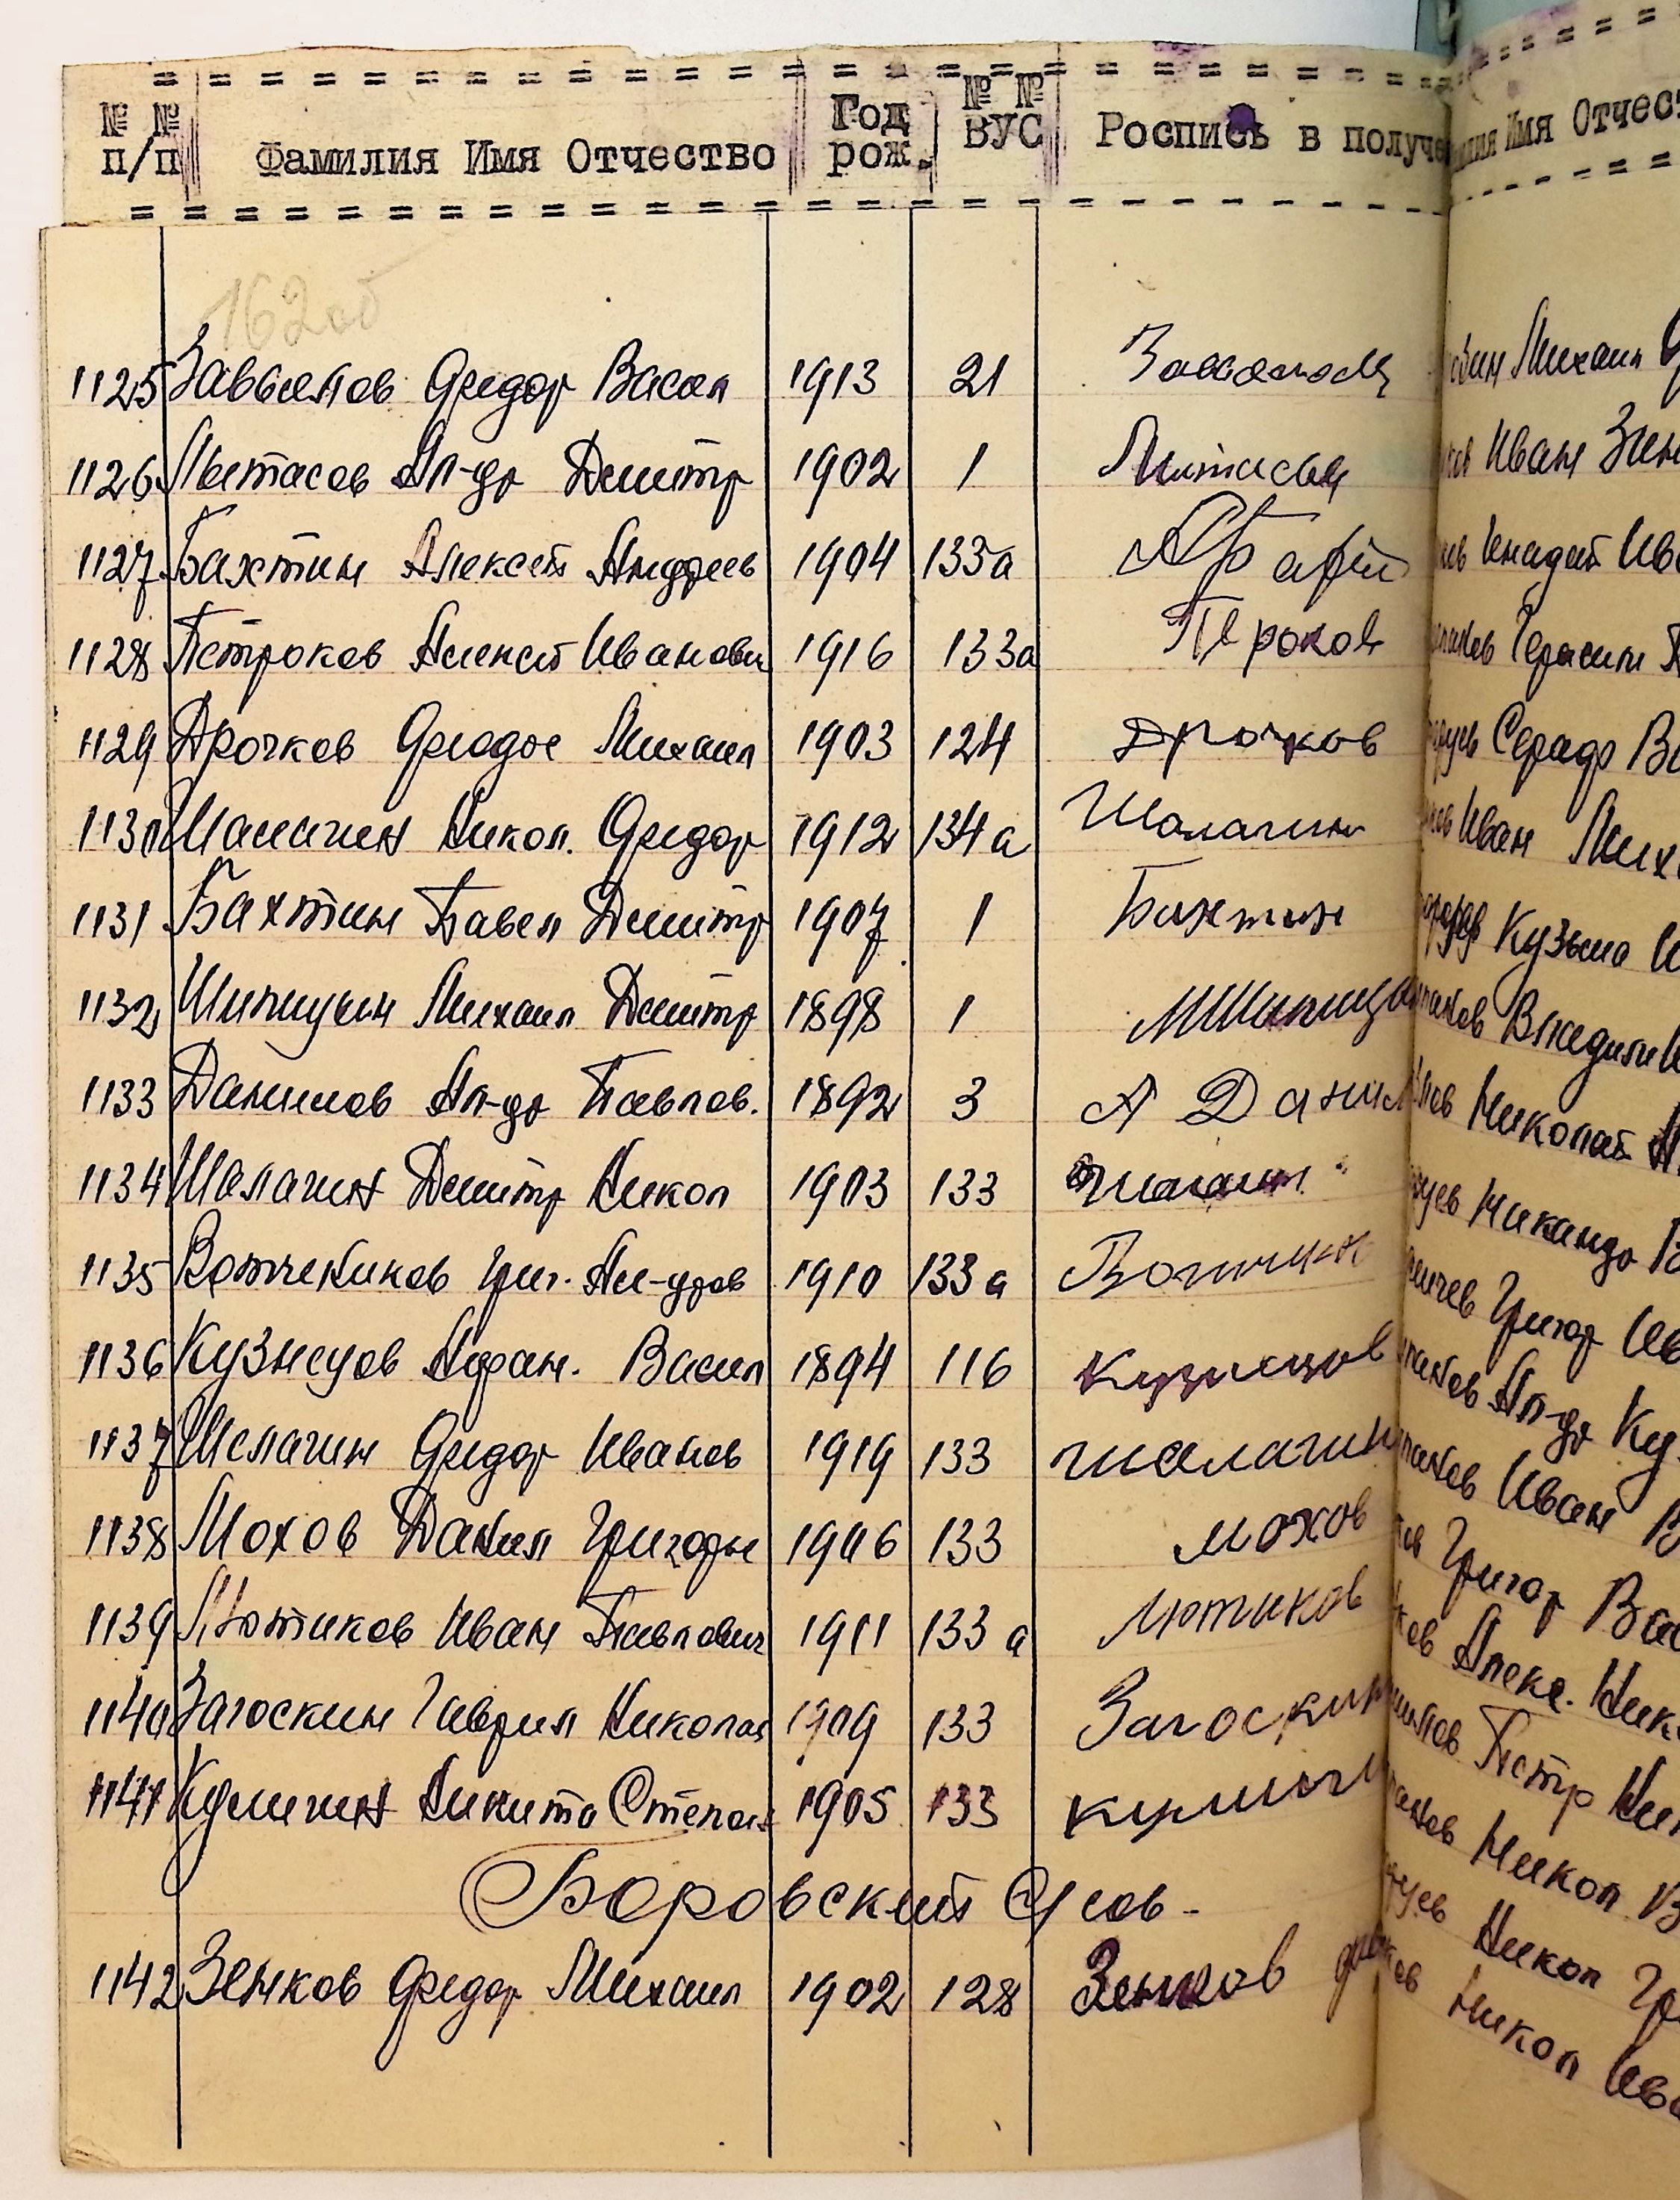 № № п/п Фамилия Имя Отчество Год рож. № № ВУС Роспись в получе
162об
1125 Завьялов Федор Васил 1913 21
1126 Лытасов Ал-др Дмитр 1902 1 Литасов
1127 Бахтин Алексей Андреев 1904 133а
1128 Петроков Алексей Иванович 1916 133а Пероков
1129 Дрочков Федор Михаил 1903 124 Дрочков
1130 Шалагин Никол. Федор 1912 134а Шалагин
1131 Бахтин Павел Дмитр 1907 1 Бахтин
1132 Шипицын Михаил Дмитр 1898 1 МШипицы
1133 Данилов Ал-др Павлов. 1892 3 А Данил
1134 Шалагин Дмитр Никол 1903 133
1135 Вотчеников Григ. Ал-дров 1910 133а
1136 Кузнецов Афан. Васил 1894 116 Кузнецов
1137 Шелагин Федор Иванов 1919 133 шелагин
1138 Мохов Данил Григорье 1906 133 мохов
1139 Лютиков Иван Павлович 1911 133а Лютиков
1140 Загоскин Гаврил Николая 1909 133 Загоскин
1141 Кулигин Никита Степан 1905 133
Боровский С/сов-
1142 Зенков Федор Михаил 1902 128 Зенков
Имя Отчест
Михаил
Иван
Герасим
Серафр
Иван Мих
Кузьма
Николай
Никандр
Григор Ив
Ал-др Ку
Иван В
Григор Вас
Алекс. Ник
Петр Ни
Никол В
Никол Гр
Никол Ив